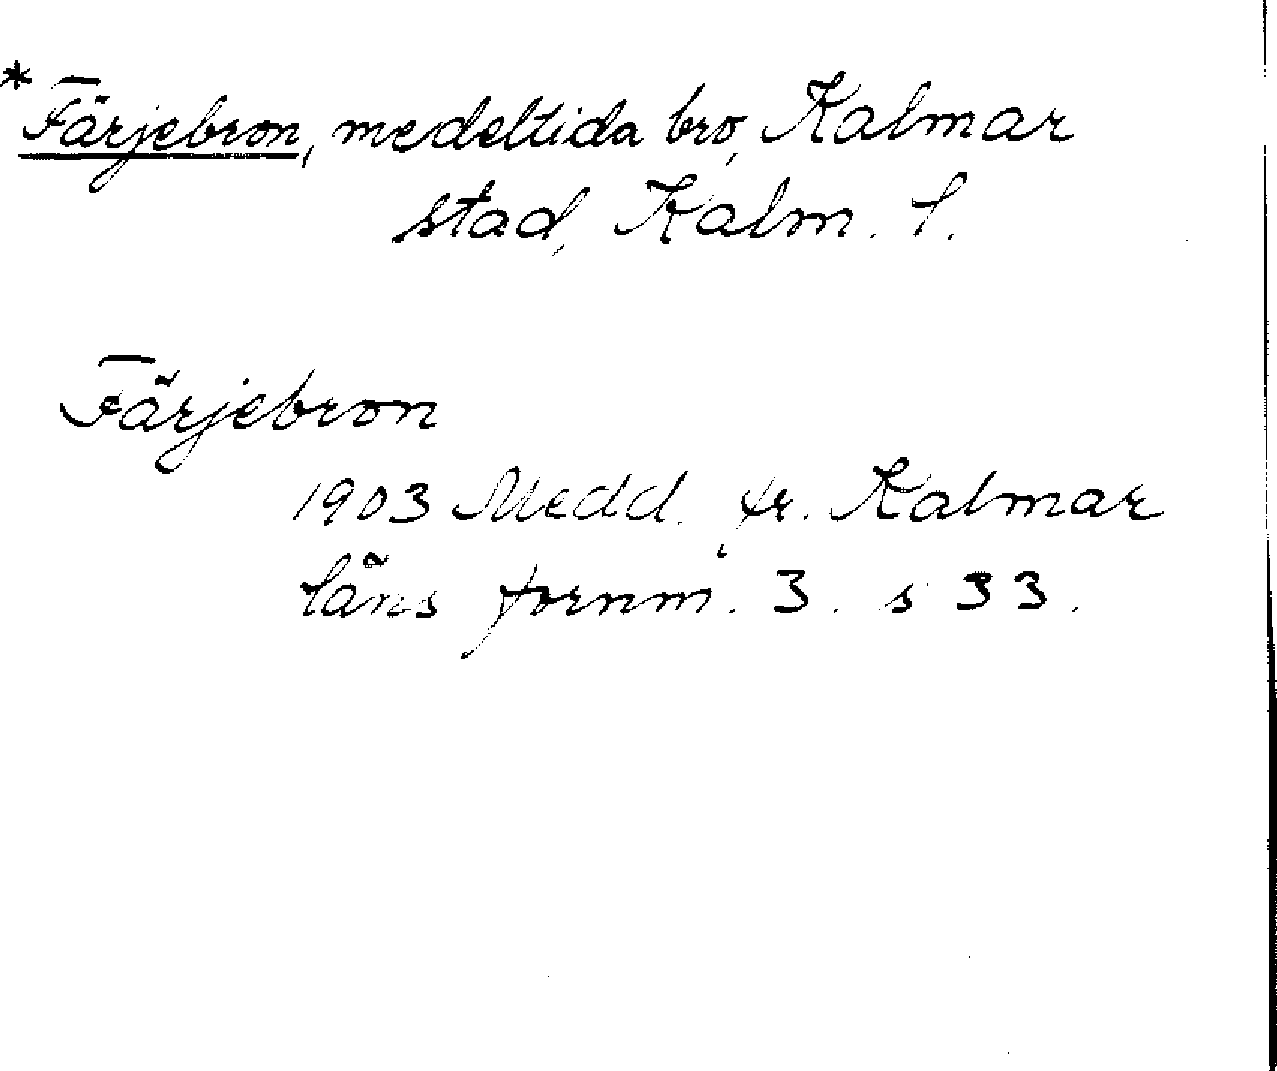 * Färjebron, medeltida bro, Kalmar
stad, Kalm. l.
Färjebron
1903 Medd. fr. Kalmar
läns fornm. 3. s 33.